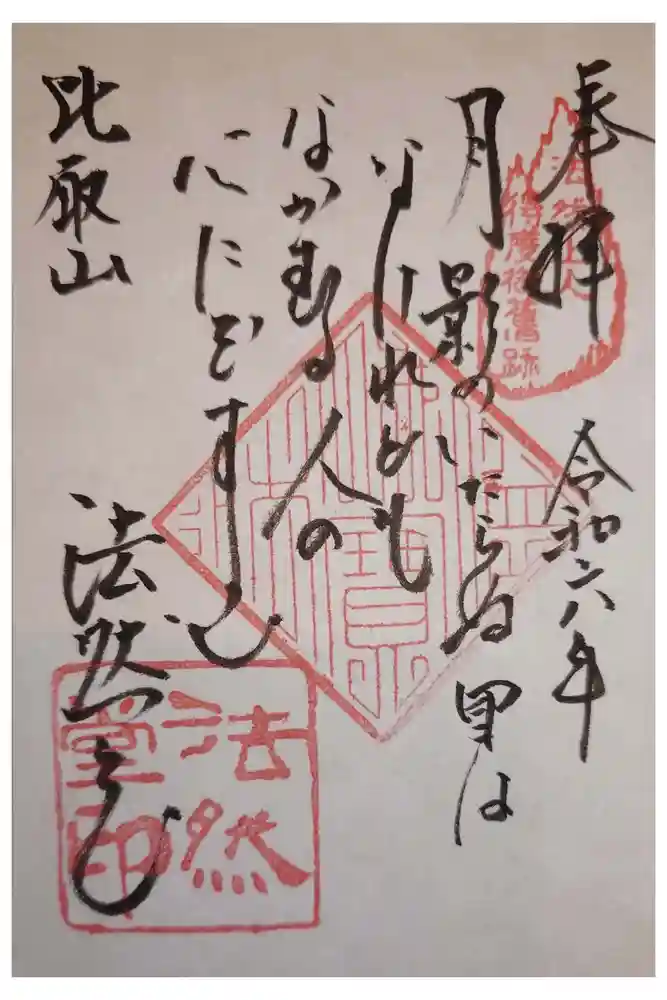 奉拝
令和六年
法然上人
得度御旧跡
月影のいたらぬ里は
なけれども
ながむる人の
心にぞすむ
比叡山
法然堂
法然
堂印